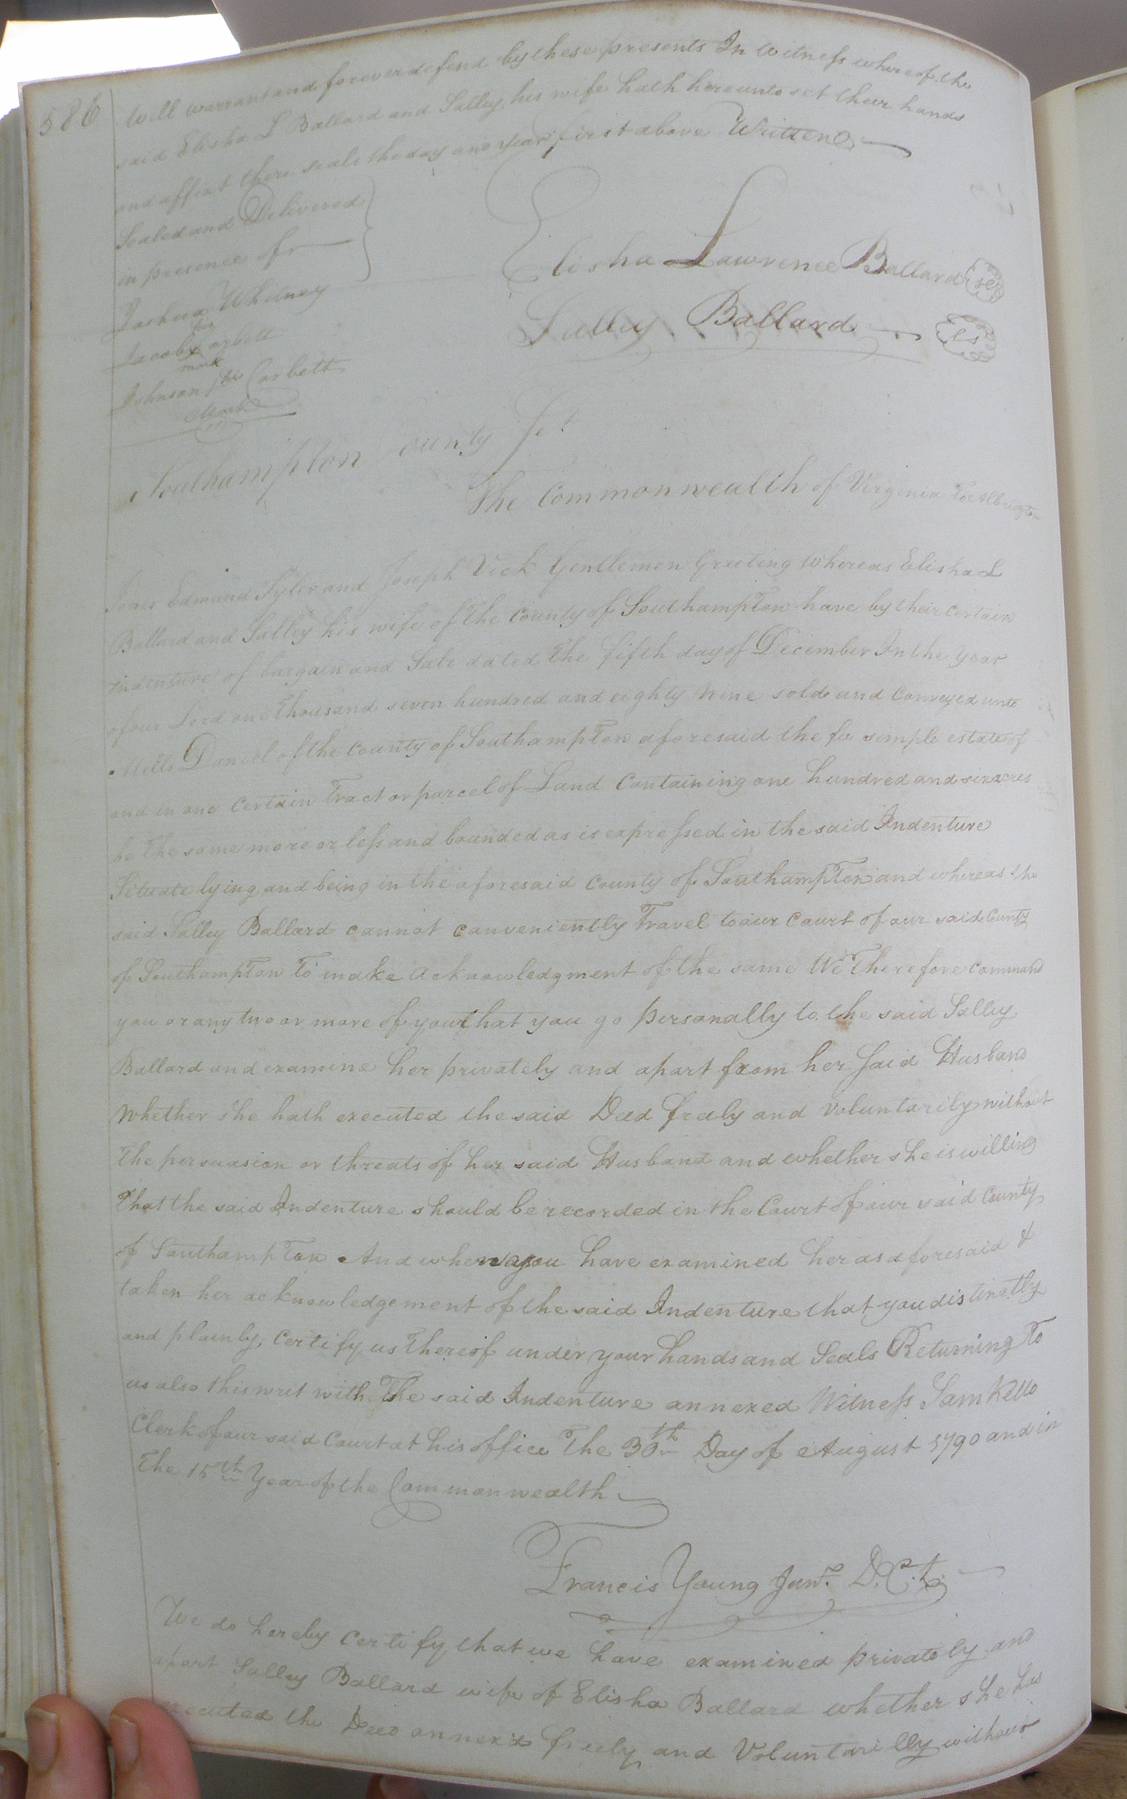 586
Will warrant and forever defend by these presents In Witness whereof the
said Elisha L Ballard and Salley his wife hath hereunto set their hands
and affixt there seals the day and Year first above Written
Sealed and Delivered
in presence of
Elisha Lawrence Ballard
Salley Ballard Ls
Joshua Whitney
Jacob his Corbett
mark
Johnson his Corbett
Mark
Southampton County Sct
The Commonwealth of Virginia To
Jones Edmund Tyler and Joseph Vick Gentlemen Greeting Whereas Elisha L
Ballard and Salley his wife of the County of Southampton have by their certain
indenture of bargain and Sale dated the fifth day of December In the year
of our Lord one thousand seven hundred and eighty nine sold and Conveyed unto
Mills Daniel of the County of Southampton aforesaid the fee simple estate of
and in one Certain Tract or parcel of Land Containing one hundred and six acres
be the same more or less and bounded as is expressed in the said Indenture
Situate lying and being in the aforesaid County of Southampton and whereas the
said Salley Ballard cannot conveniently Travel to our Court of our said County
of Southampton To make acknowledgment of the same We Therefore command
you or any two or more of you that you go personally to the said Salley
Ballard and examine her privately and apart from her Said Husband
Whether she hath executed the said Deed freely and voluntarily without
the persuasion or threats of her said Husband and whether she is willing
That the said Indenture should be recorded in the Court of our said County
of Southampton And when you have examined her as aforesaid &
taken her acknowledgement of the said Indenture that you distinctly
and plainly, Certify us thereof under your hands and Seals Returning To
us also this writ with The said Indenture annexed Witness Sam Kello
Clerk of our said Court at his office The 30th Day of August 1790 and in
the 15th Year of the Commonwealth
Francis Young Junr. D.C.
We do hereby Certify that we have examined privately and
apart Salley Ballard wife of Elisha Ballard whether she has
executed the Deed annex'd freely and Voluntarilly without